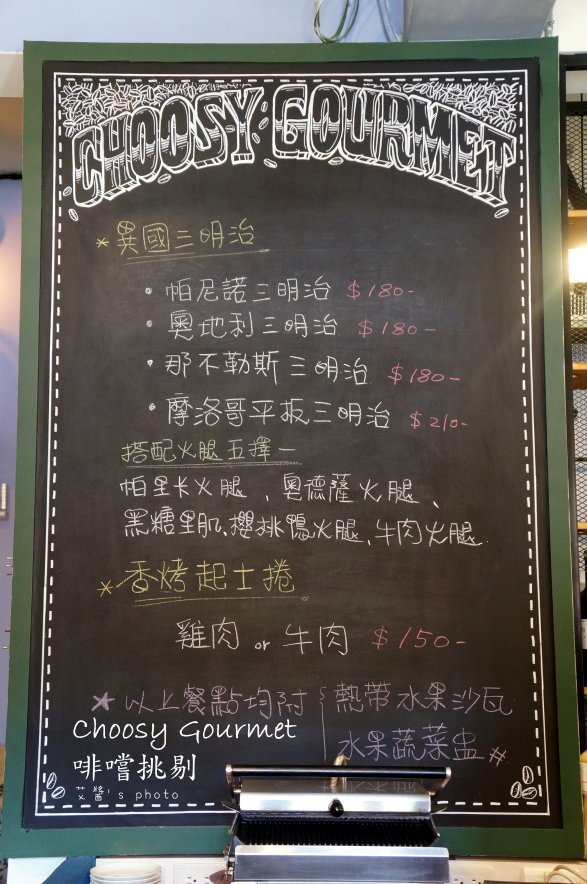 CHOOSY GOURMET
* 異國三明治
• 帕尼諾三明治 $180-
• 奧地利三明治 $180-
• 那不勒斯三明治 $180-
• 摩洛哥平扳三明治 $210-
搭配火腿五擇一
帕里卡火腿、奧德薩火腿、
黑糖里肌、櫻桃鴨火腿、牛肉火腿
* 香烤起士捲
雞肉 or 牛肉 $150-
* 以上餐點均附 熱帶水果沙瓦
水果蔬菜盅 #
Choosy Gourmet
啡嚐挑剔
艾醬's photo